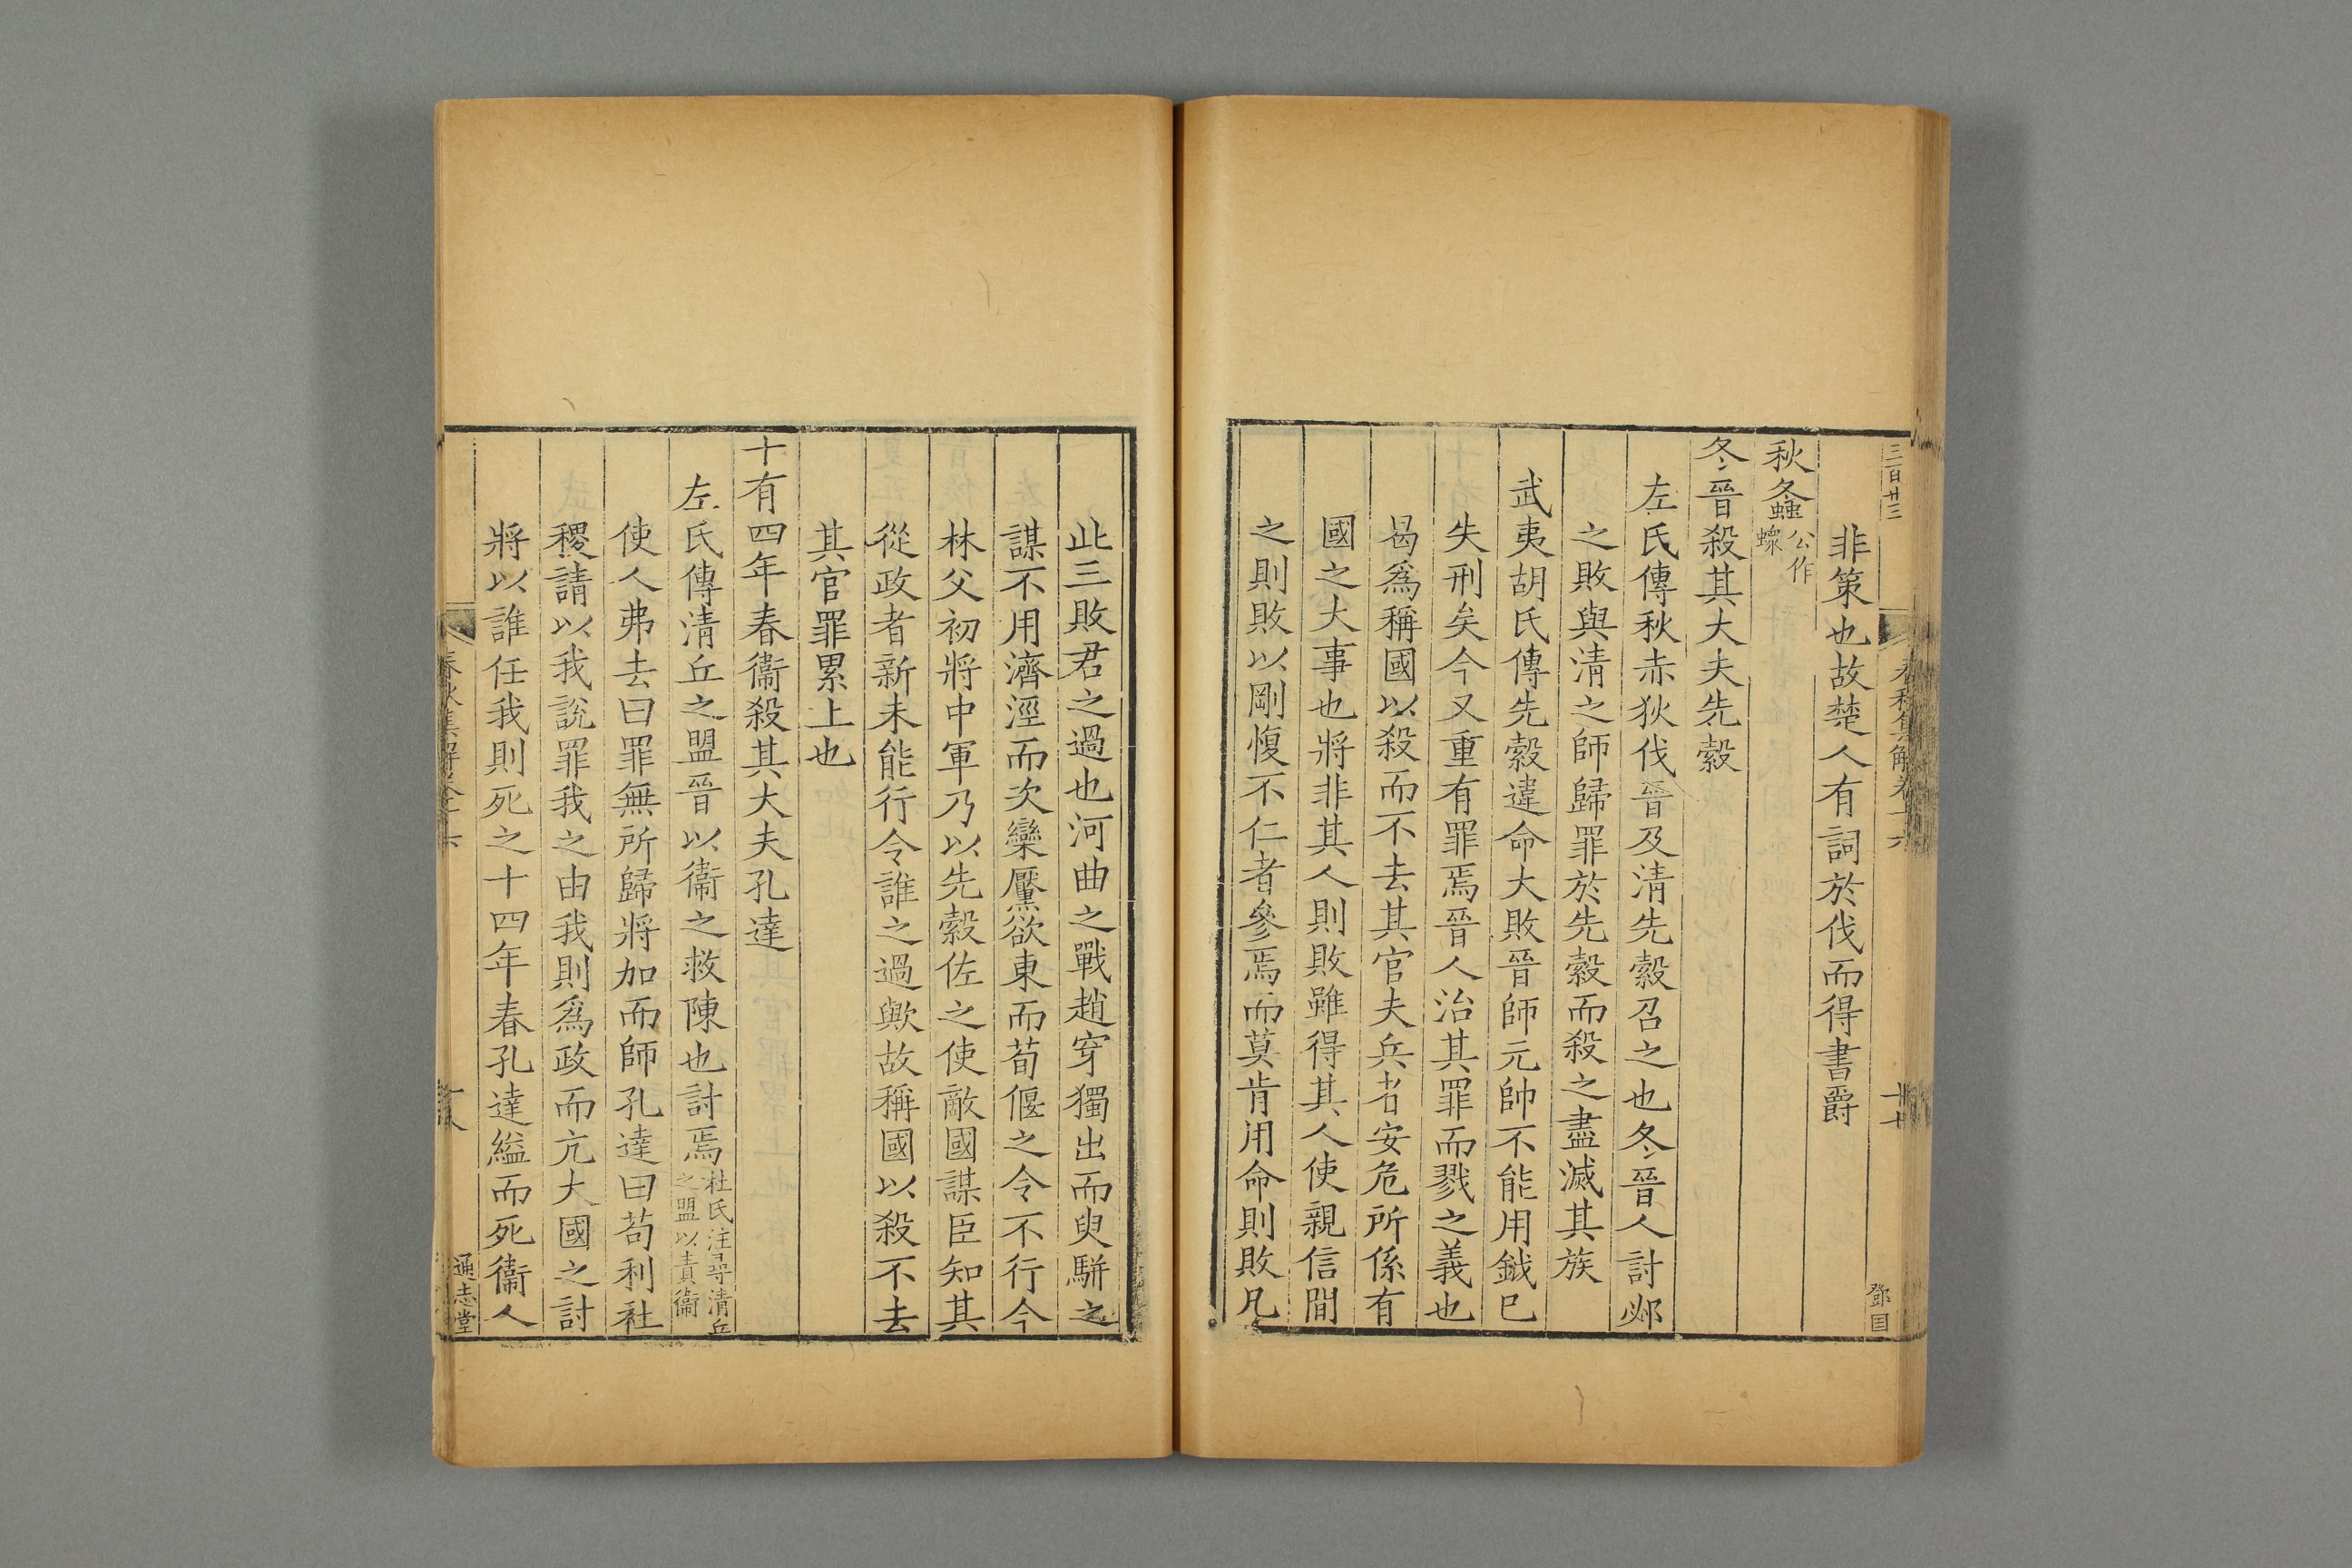 三百廿三
春秋集解卷十六
十七
鄧国
非策也故楚人有詞於伐而得書爵
秋螽公作
蠑
冬晉殺其大夫先縠
左氏傳秋赤狄伐晉及清先縠召之也冬晉人討邲
之敗與清之師歸罪於先縠而殺之盡滅其族
武夷胡氏傳先縠違命大敗晉師元帥不能用鉞已
失刑矣今又重有罪焉晉人治其罪而戮之義也
曷爲稱國以殺而不去其官夫兵者安危所係有
國之大事也將非其人則敗雖得其人使親信間
之則敗以剛愎不仁者參焉而莫肯用命則敗凡
此三敗君之過也河曲之戰趙穿獨出而臾駢之
謀不用濟涇而次欒黶欲東而荀偃之令不行今
林父初將中軍乃以先縠佐之使敵國謀臣知其
從政者新未能行令誰之過歟故稱國以殺不去
其官罪累上也
十有四年春衞殺其大夫孔達
左氏傳清丘之盟晉以衞之救陳也討焉杜氏注尋清丘
之盟以責衞
使人弗去曰罪無所歸將加而師孔達曰苟利社
稷請以我說罪我之由我則爲政而亢大國之討
將以誰任我則死之十四年春孔達縊而死衞人
春秋集解卷十六
十八
通志堂